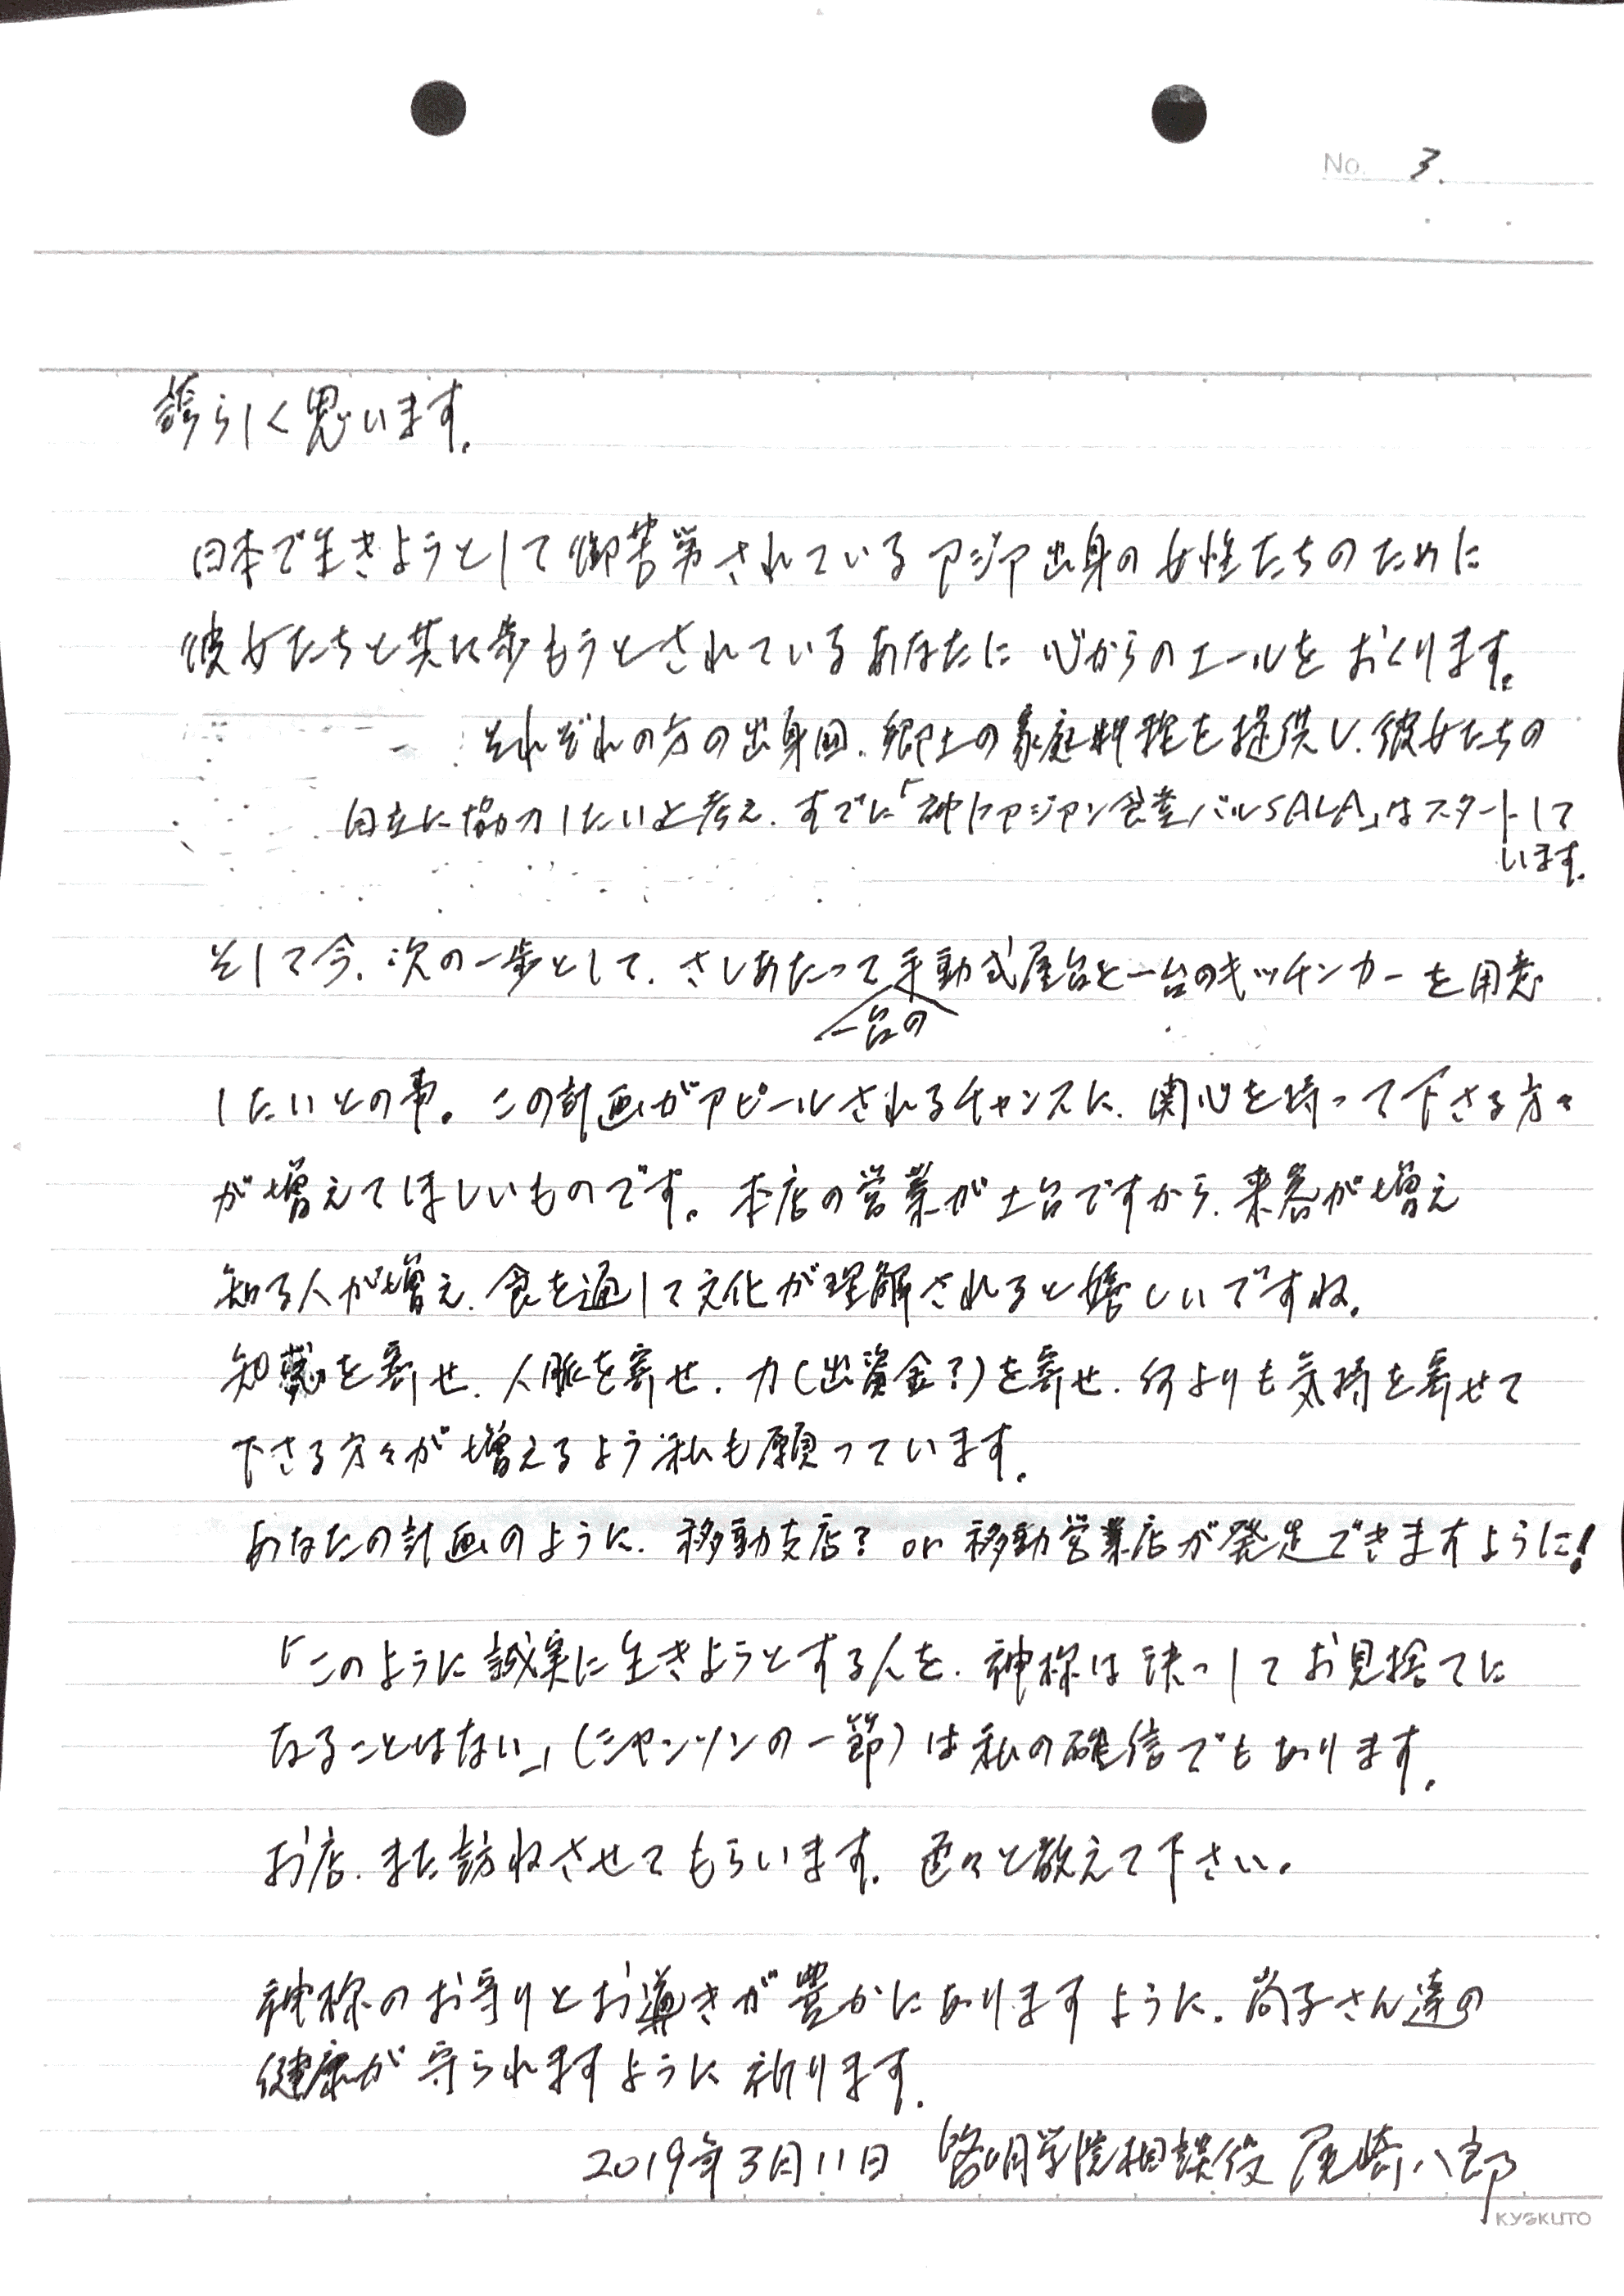 No. 3.
誇らしく思います。
日本で生きようとして御苦労されているアジア出身の女性たちのために
彼女たちと共に歩もうとされているあなたに心からのエールをおくります。
それぞれの方の出身国、郷土の家庭料理を提供し、彼女たちの
自立に協力したいと考え、すでに「神戸アジアン食堂バルSALA」はスタートして
います。
そして今、次の一歩として、さしあたって手動式屋台と一台のキッチンカーを用意
一台の
したいとの事。この計画がアピールされるチャンスに、関心を持って下さる方々
が増えてほしいものです。本店の営業が土台ですから、来客が増え
知る人が増え、食を通して文化が理解されると嬉しいですね。
知恵を寄せ、人脈を寄せ、力(出資金?)を寄せ、何よりも気持を寄せて
下さる方々が増えるよう私も願っています。
あなたの計画のように、移動支店? or 移動営業店が発足できますように!
「このように誠実に生きようとする人を、神様は決っしてお見捨てに
なることはない」(シャンソンの一節)は私の確信でもあります。
お店、また訪ねさせてもらいます。色々と教えて下さい。
神様のお守りとお導きが豊かにありますように。尚子さん達の
健康が守られますように祈ります。
2019年3月11日 啓明学院相談役 尾崎八郎
KYOKUTO